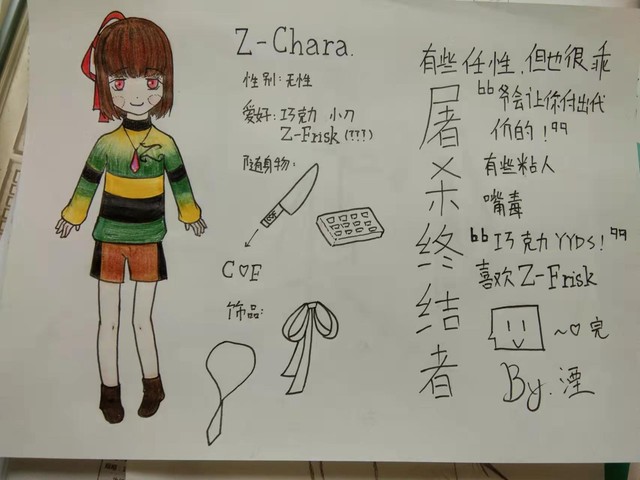 Z-Chara.
性别:无性
爱好:巧克力 小刀
Z-Frisk(???)
随身物:
C♡F
饰品:
屠杀终结者
有些任性,但也很乖
“爷会让你付出代
价的!”
有些粘人
嘴毒
“巧克力YYDS!”
喜欢Z-Frisk
~♡完
By.湮
Z